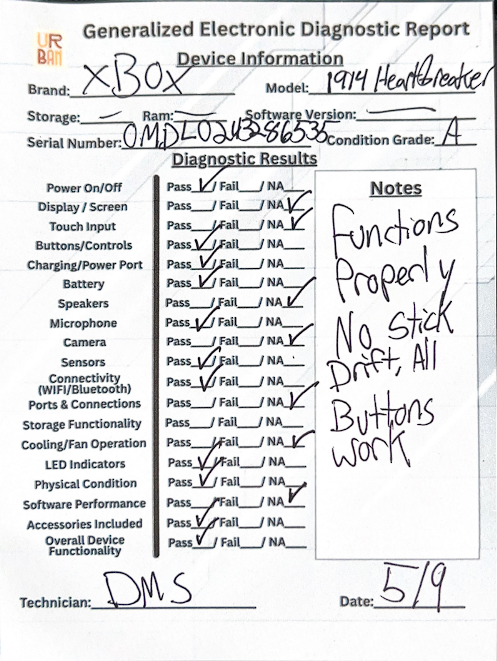 UR
BAN
Generalized Electronic Diagnostic Report
Device Information
Brand: XBOX Model: 1914 Heartbreaker
Storage: — Ram: — Software Version: —
Serial Number: 0MDL0243286535 Condition Grade: A
Diagnostic Results
Power On/Off Pass ✓/Fail__/NA__
Display / Screen Pass__/Fail__/NA ✓
Touch Input Pass__/Fail__/NA ✓
Buttons/Controls Pass ✓/Fail__/NA__
Charging/Power Port Pass ✓/Fail__/NA__
Battery Pass ✓/Fail__/NA__
Speakers Pass__/Fail__/NA ✓
Microphone Pass ✓/Fail__/NA__
Camera Pass__/Fail__/NA ✓
Sensors Pass ✓/Fail__/NA__
Connectivity
(WIFI/Bluetooth) Pass ✓/Fail__/NA__
Ports & Connections Pass__/Fail__/NA ✓
Storage Functionality Pass__/Fail__/NA__
Cooling/Fan Operation Pass__/Fail__/NA ✓
LED Indicators Pass ✓/Fail__/NA__
Physical Condition Pass ✓/Fail__/NA__
Software Performance Pass__/Fail__/NA ✓
Accessories Included Pass ✓/Fail__/NA__
Overall Device
Functionality Pass ✓/Fail__/NA__
Notes
Functions
Properly
No Stick
Drift, All
Buttons
work
Technician: DMS Date: 5/9